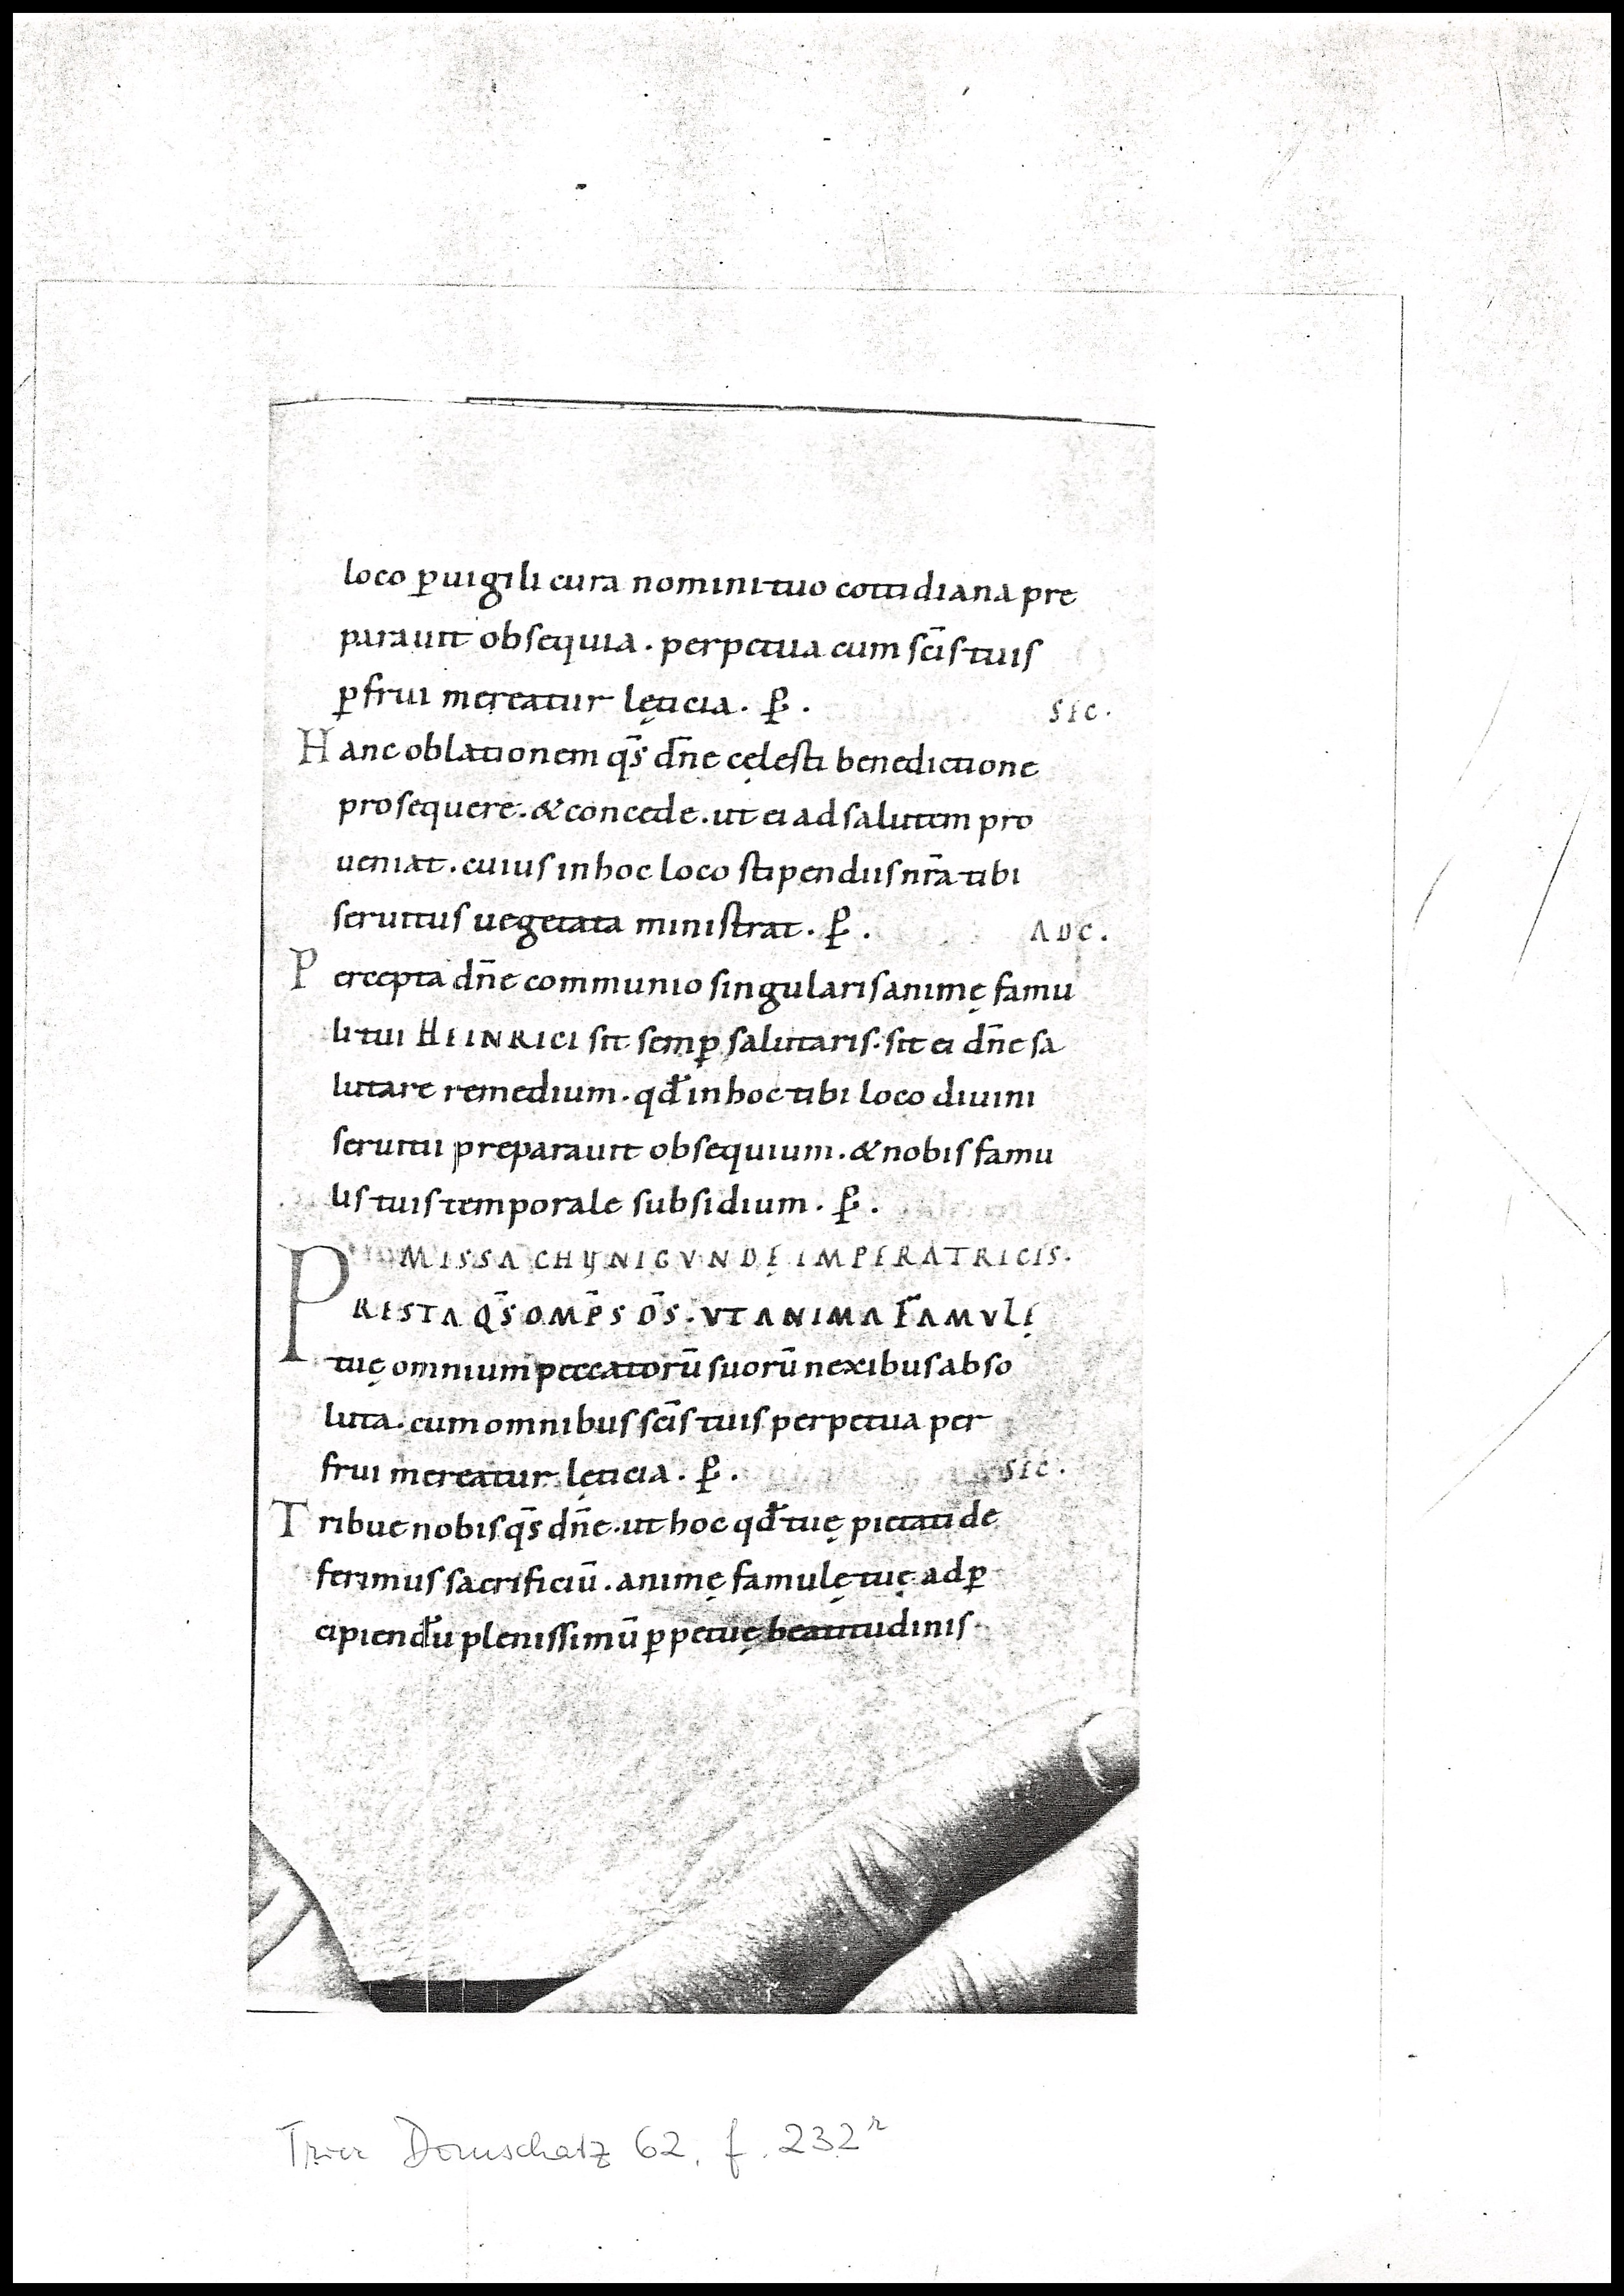 loco ꝑuigili cura nomini tuo cottidiana pre
parauit obsequia. perpetua cum sc̄is tuis
ꝑfrui mereatur lęticia. ꝑ.
SEC.
Hanc oblationem qs̄ dn̄e cęlesti benedictione
prosequere. & concede. ut ei ad salutem pro
ueniat. cuius in hoc loco stipendiis nr̄a tibi
seruitus uegetata ministrat. ꝑ.
ADC.
Percepta dn̄e communio singularis animę famu
li tui HEINRICI sit semꝑ salutaris. sit ei dn̄e sa
lutare remedium. qđ in hoc tibi loco diuini
seruitii preparauit obsequium. & nobis famu
lis tuis temporale subsidium. ꝑ.
MISSA CHVNIGVNDĘ IMPERATRICIS.
PRESTA QS̄ OMP̄S DS̄. VT ANIMA FAMVLĘ
tuę omnium peccatorū suorū nexibus abso
luta. cum omnibus sc̄is tuis perpetua per
frui mereatur lęticia. ꝑ.
SEC.
Tribue nobis qs̄ dn̄e. ut hoc qđ tuę pietati de
ferimus sacrificiū. animę famulę tuę ad ꝑ
cipiendū plenissimū ꝑpetuę beatitudinis.
Trier Domschatz 62, f. 232r